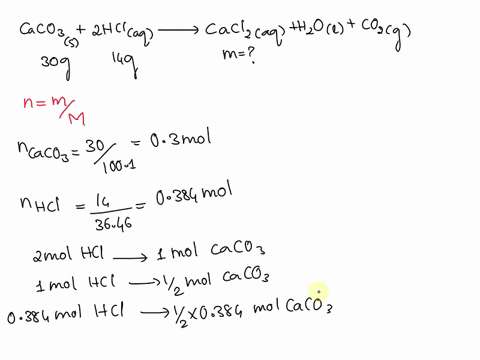 CaCO3(s) + 2HCl(aq) → CaCl2(aq) + H2O(l) + CO2(g)
30g 14g m=?
n = m/M
nCaCO3 = 30/100.1 = 0.3 mol
nHCl = 14/36.46 = 0.384 mol
2mol HCl → 1 mol CaCO3
1 mol HCl → 1/2 mol CaCO3
0.384 mol HCl → 1/2 x 0.384 mol CaCO3